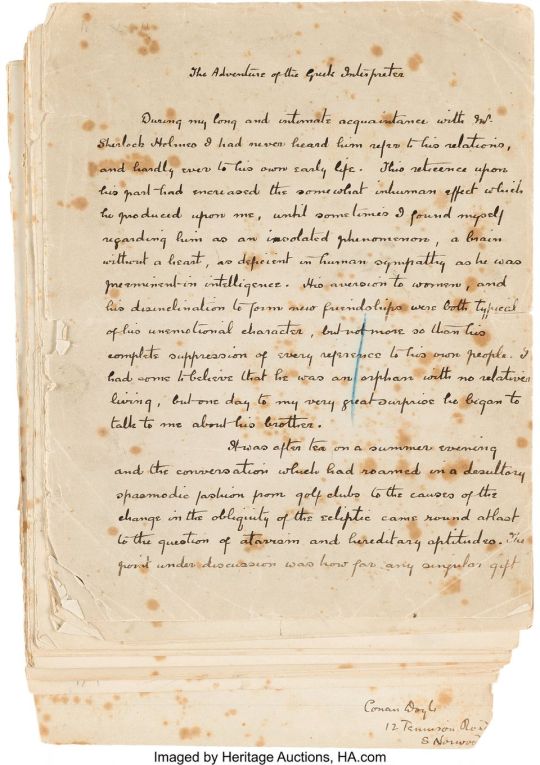 The Adventure of the Greek Interpreter
During my long and intimate acquaintance with Mr
Sherlock Holmes I had never heard him refer to his relations,
and hardly ever to his own early life. This reticence upon
his part had increased the somewhat inhuman effect which
he produced upon me, until sometimes I found myself
regarding him as an insolated phenomenon, a brain
without a heart, as deficient in human sympathy as he was
preeminent in intelligence. His aversion to women, and
his disinclination to form new friendships were both typical
of his unemotional character, but not more so than his
complete suppression of every reference to his own people. I
had come to believe that he was an orphan with no relatives
living, but one day to my very great surprise he began to
talk to me about his brother.
It was after tea on a summer evening
and the conversation which had roamed in a desultory
spasmodic fashion from golf clubs to the causes of the
change in the obliquity of the ecliptic came round at last
to the question of atavism and hereditary aptitudes. The
point under discussion was how far any singular gift
Conan Doyle
12 Tennison Road
S Norwood
Imaged by Heritage Auctions, HA.com